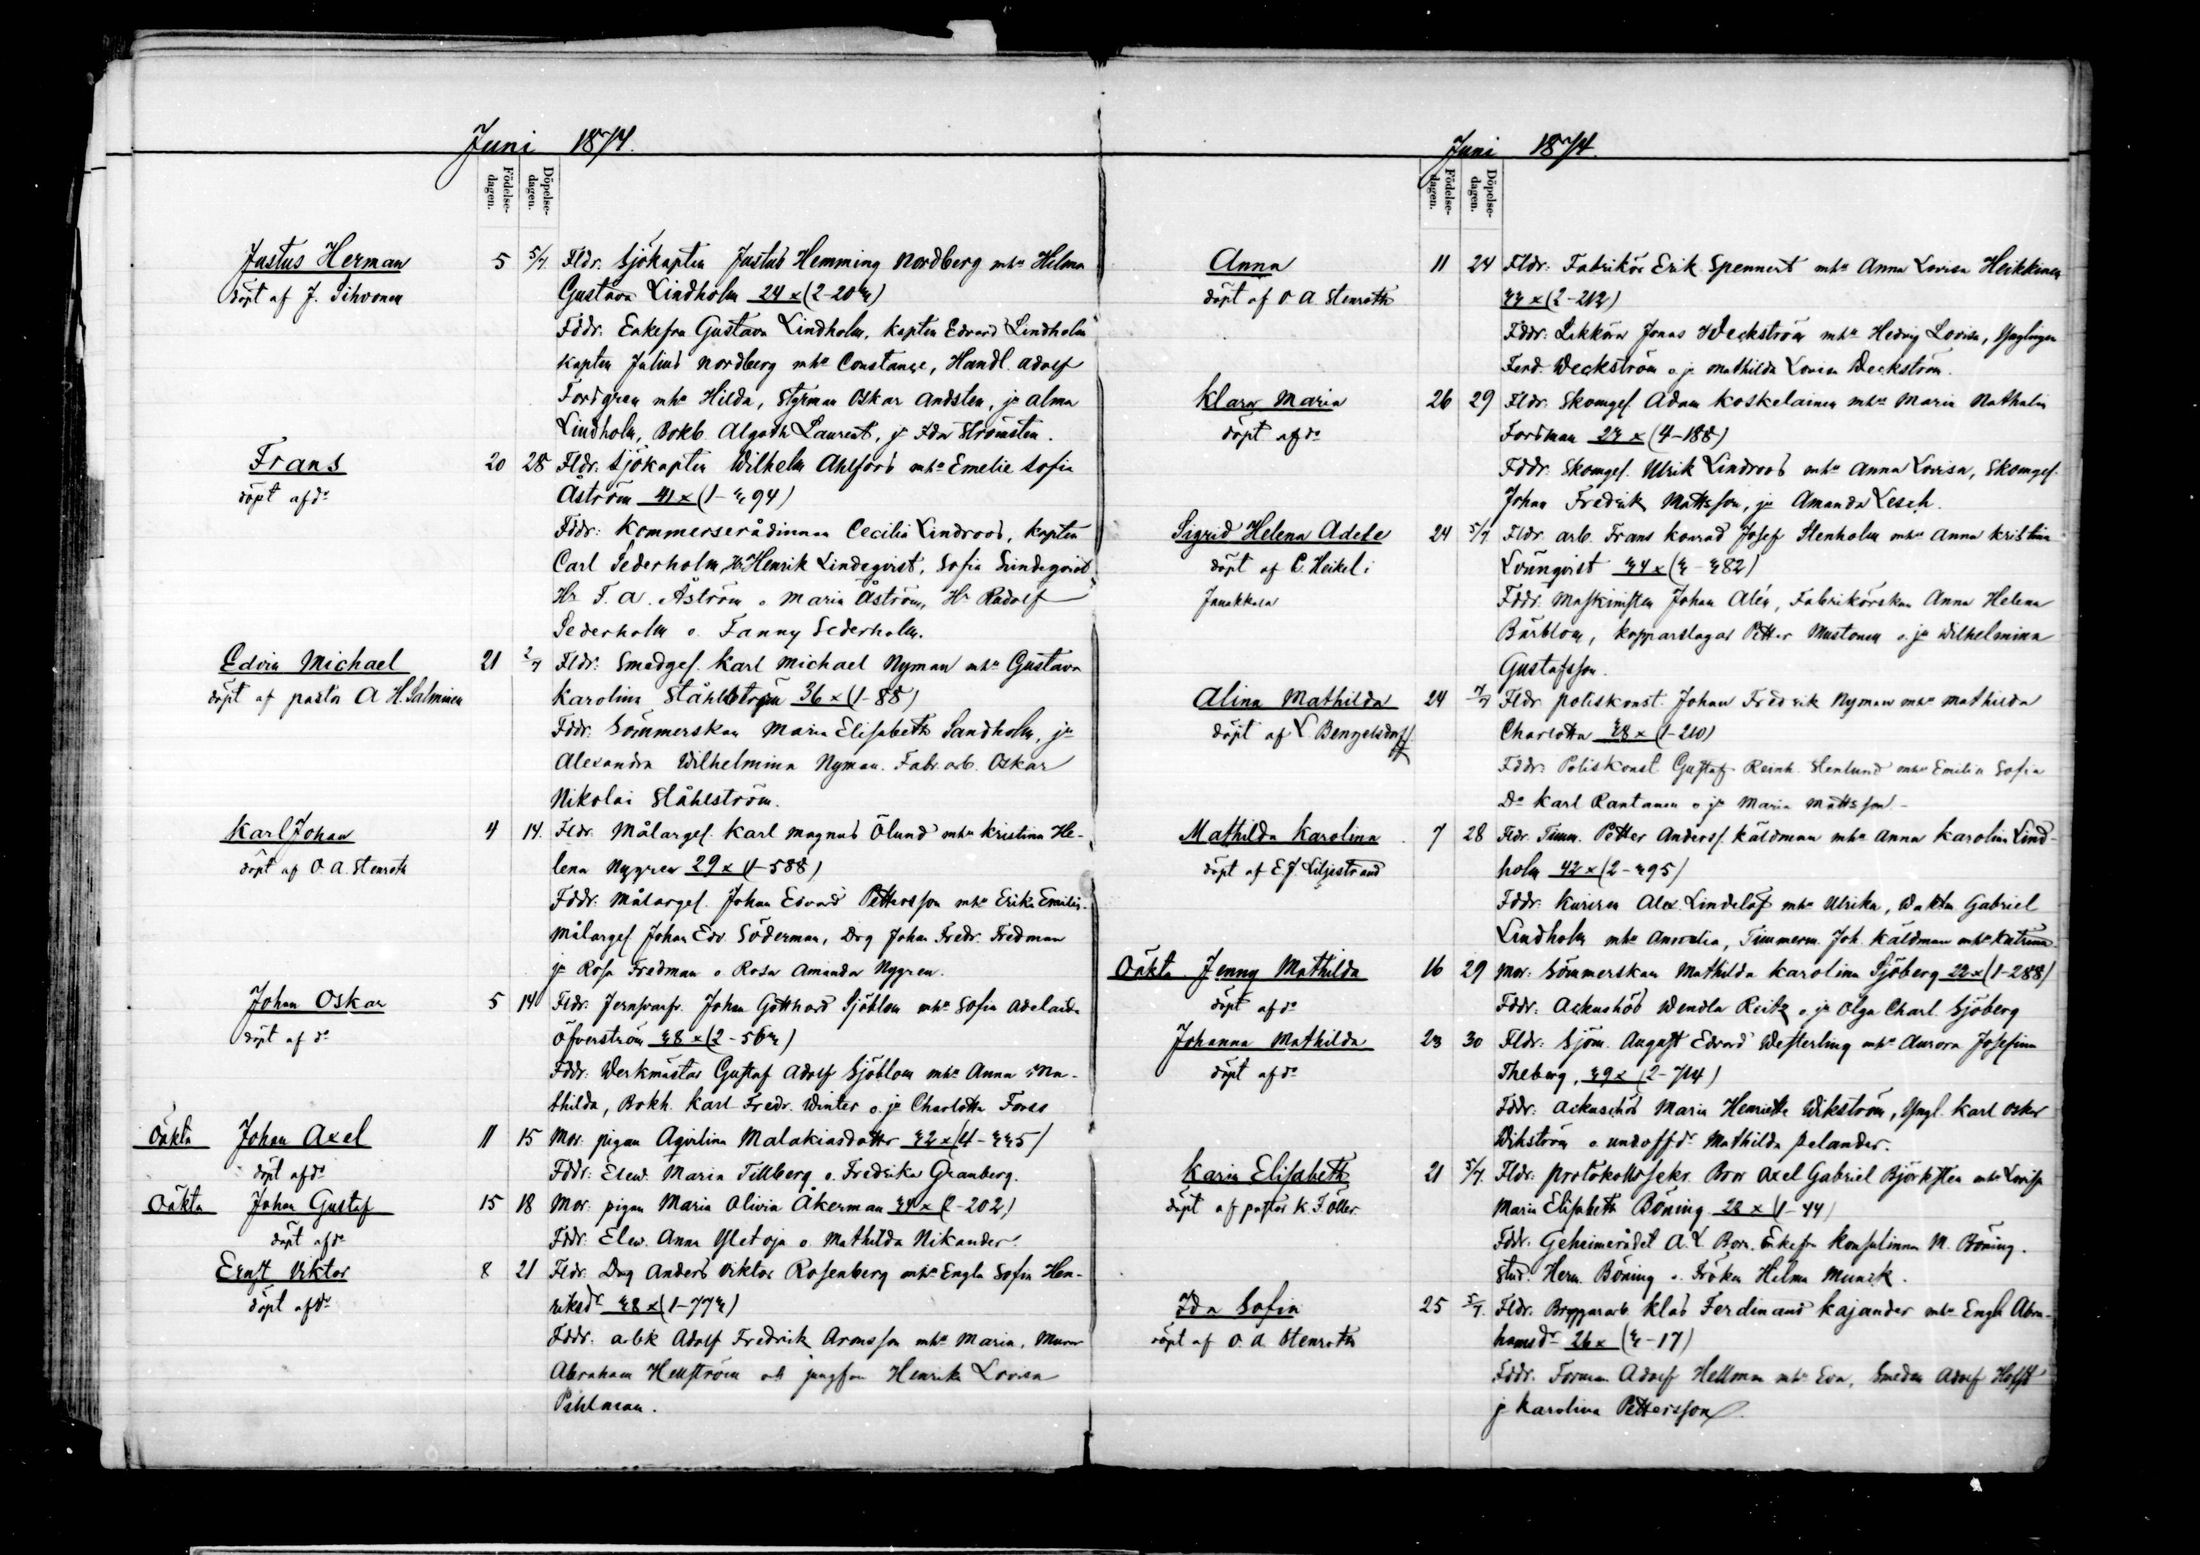 Juni 1874.
Födelse-
dagen.
Döpelse-
dagen.
Justus Herman 5 5/7. Fldr. Sjökapten Justus Hemming Nordberg mha Hilma
döpt af J. Sihvonen Gustava Lindholm 24 x (2-20
Fddr. Enkefru Gustava Lindholm, kapten Edvard Lindholm
kapten Julius Nordberg mha Constance, Handl. Adolf
Forsgren mha Hilda, Styrman Oskar Andsten, ja Alma
Lindholm, Bokb. Laurent, ja Ida Strömsten.
Frans 20 28 Fldr. Sjökapten Wilhelm Ahlfors mha Emelie Sofia
döpt af do Åström 41 x (1-
Fddr: Kommerserådinnan Cecilia Lindroos, kapten
Carl Sederholm, Hr Henrik Lindeqvist, Sofia Lindeqvist
Hr F. A. Åström o Maria Åström, Hr Rudolf
Sederholm o. Fanny Sederholm.
Edvin Michael 21 2/7 Fldr: Smedges. Karl Michael Nyman mha Gustava
döpt af pastor A H. Salminen Karolina Ståhlström 36 x (1-88)
Fddr. Sömmerskan Maria Elisabeth Sandholm, ja
Alexandra Wilhelmina Nyman. Fabr. arb. Oskar
Nikolai Ståhlström.
Karl Johan 4 14. Fldr. Målarges. Karl Magnus Ölund mha Kristina He-
döpt af O. A. Stenroth lena Nygren 29 x (1-588)
Fddr. Målarges. Johan Edvard Pettersson mha Erika Emilia.
Målarges Johan Edv. Söderman, Drg Johan Fredr. Fredman
ja Rosa Fredman o Rosa Amanda Nygren.
Johan Oskar 5 14 Fldr. Johan Gotthard Sjöblom mha Sofia Adelaida
döpt af do Öfverström
Fddr. Werkmästar Gustaf Adolf Sjöblom mha Anna Ma-
thilda, Bokh. Karl Fredr. Winter o. ja Charlotta Forss
Oäkta Johan Axel 11 15 Mor. pigan Aqvilina Malakiasdotter
döpt af do Fddr: Elew. Maria Tillberg o. Fredrika Granberg.
Oäkta Johan Gustaf 15 18 Mor. pigan Maria Olivia Åkerman (2-202)
döpt af do Fddr. Elew. Anna Yletoja o. Mathilda Nikander.
Ernst Viktor 8 21 Fldr. Drg Anders Viktor Rosenberg mha Engla Sofia Hen-
döpt af do riksdr
Fddr. arbk Adolf Fredrik Aronsson mha Maria, Murar
Abraham Hellström och jungfru Henrika Lovisa
Pihlman.
Juni 1874.
Födelse-
dagen.
Döpelse-
dagen.
Anna 11 24 Fldr: Fabrikör Erik Spennert mha Anna Lovisa Heikkinen
döpt af O A. Stenroth
Fddr: Jonas Weckström mha Hedvig Lovisa, Ynglingen
Ferd. Weckström o ja Mathilda Lovisa Weckström.
Klara Maria 26 29 Fldr. Skomges. Adam Koskelainen mha Maria Nathalia
döpt af do Forsman (4-188)
Fddr. Skomges. Ulrik Lindroos mha Anna Lovisa, Skomges.
Johan Fredrik Mattsson, ja Amanda Lesch.
Sigrid Helena Adele 24 5/7 Fldr. arb. Frans Konrad Josef Stenholm mha Anna Kristina
döpt af C. Heikel i Lönnqvist
Janakkala Fddr. Maskinisten Johan Alén, Fabrikörskan Anna Helena
Bärblom, kopparslagar Petter Mustonen o. ja Wilhelmina
Gustafsson.
Alina Mathilda 24 7/7 Fldr poliskonst. Johan Fredrik Nyman mha Mathilda
döpt af L. Bengelsdorff Charlotta (1-210)
Fddr: Poliskonst. Gustaf Reinh. Stenlund mha Emilia Sofia
Do Karl Rantanen o ja Maria Mattsson.
Mathilda Karolina 7 28 Fldr. Timm. Petter Anderss. Käldman mha Anna Karolina Lind-
döpt af E J. Liljestrand holm 42 x (2-
Fddr. Alex Lindelöf mha Ulrika, Gabriel
Lindholm mha Amalia, Timmerm. Joh. Käldman mha Katrina
Oäkta Jenny Mathilda 16 29 Mor: Sömmerskan Mathilda Karolina Sjöberg 22 x (1-288)
döpt af do Fddr: Wendla Reitz o ja Olga Charl. Sjöberg
Johanna Mathilda 23 30 Fldr: Sjöm. August Edvard Westerling mha Aurora Josefina
döpt af do Theberg, (2-714)
Fddr: Maria Henrietta Wikström, Yngl. Karl Oskar
Wikström o. Mathilda Selander.
Karin Elisabeth 21 5/7. Fldr. protokollssekr. Bror Axel Gabriel Björksten mha Lovisa
döpt af pastor K. J. Öller Maria Elisabeth Böning (1-44)
Fddr. Geheimerådet A. L. Born, Enkefru Konsulinna M. Böning.
Stud. Herm. Böning o. Fröken Helma Munck.
Ida Sofia 25 5/7. Fldr. Bryggarearb. Klas Ferdinand Kajander mha Engla Abra-
döpt af O. A. Stenroth hamsdr 26 x
Fddr. Forman Adolf Hellman mha Eva, Smeden Adolf
ja Karolina Pettersson.